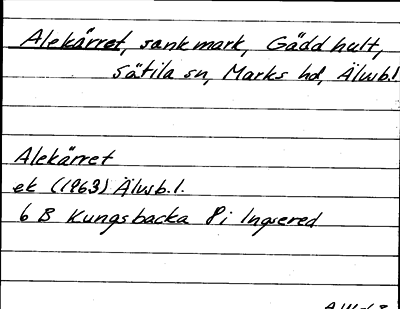 Alekärret, sank mark, Gäddhult,
Sätila sn, Marks hd, Älvsb.l
Alekärret
ek (1963) Älvsb.l.
6 B Kungsbacka 8i Ingsered